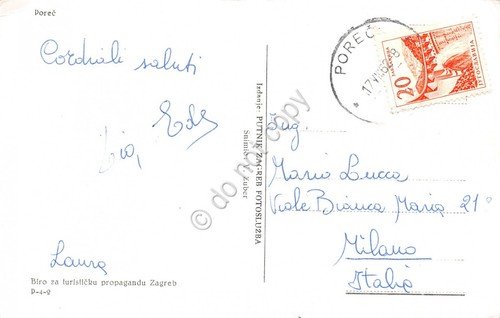 Poreč
Cordiali saluti
Laura
Biro za turističku propagandu Zagreb
P-4-2
Izdanje PUTNIK ZAGREB FOTOSLUŽBA
Zuber
© do not copy
POREČ
20
JUGOSLAVIJA
Ing.
Mario Lucca
Viale Bianca Maria 21
Milano
Italia